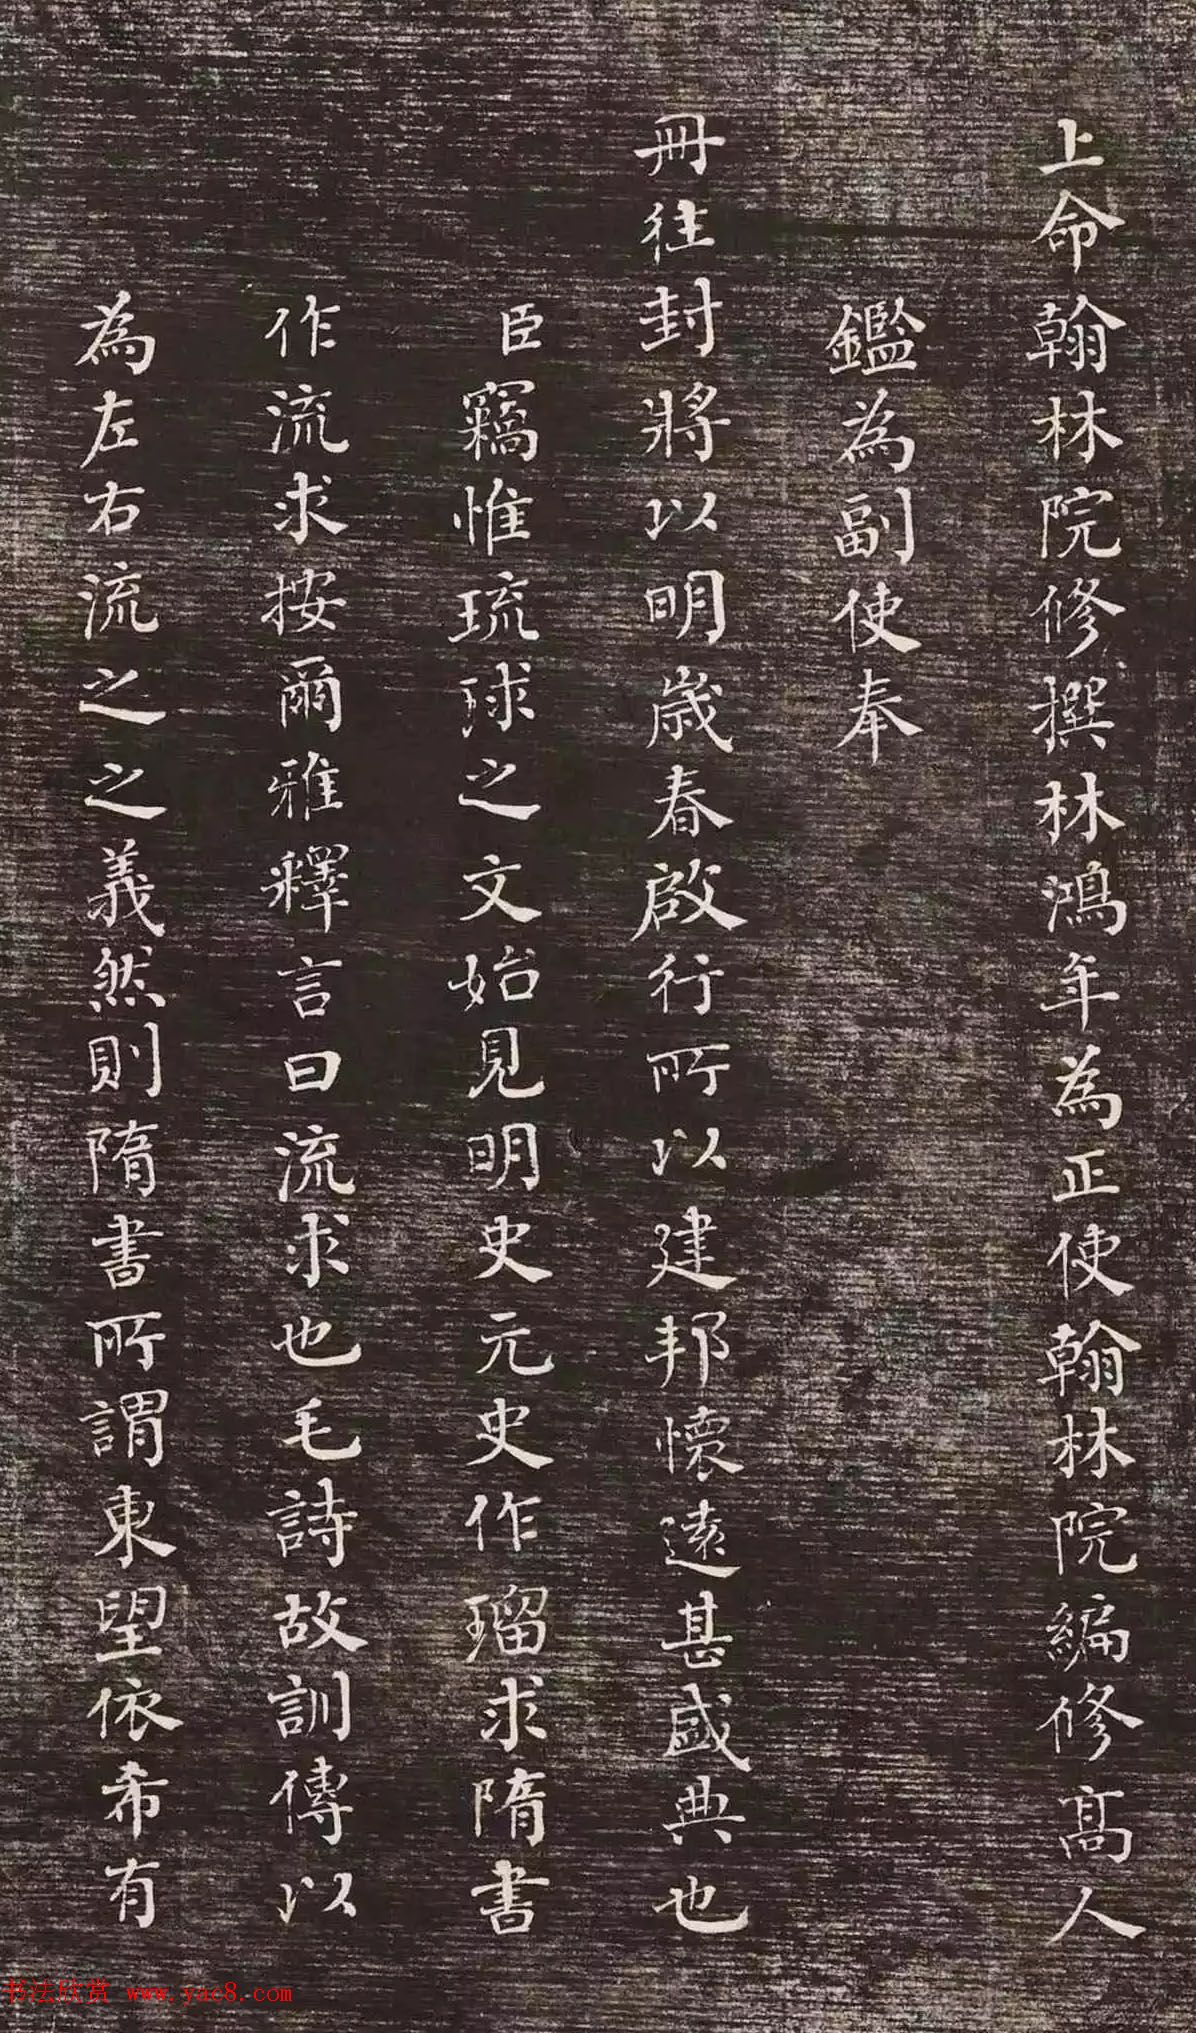 上命翰林院修撰林鴻年為正使翰林院編修髙人
鑑為副使奉
冊往封將以明歲春啟行所以建邦懷遠甚盛典也
臣竊惟琉球之文始見明史元史作瑠求隋書
作流求按爾雅釋言曰流求也毛詩故訓傳以
為左右流之之義然則隋書所謂東望依希有
书法欣赏 www.yac8.com